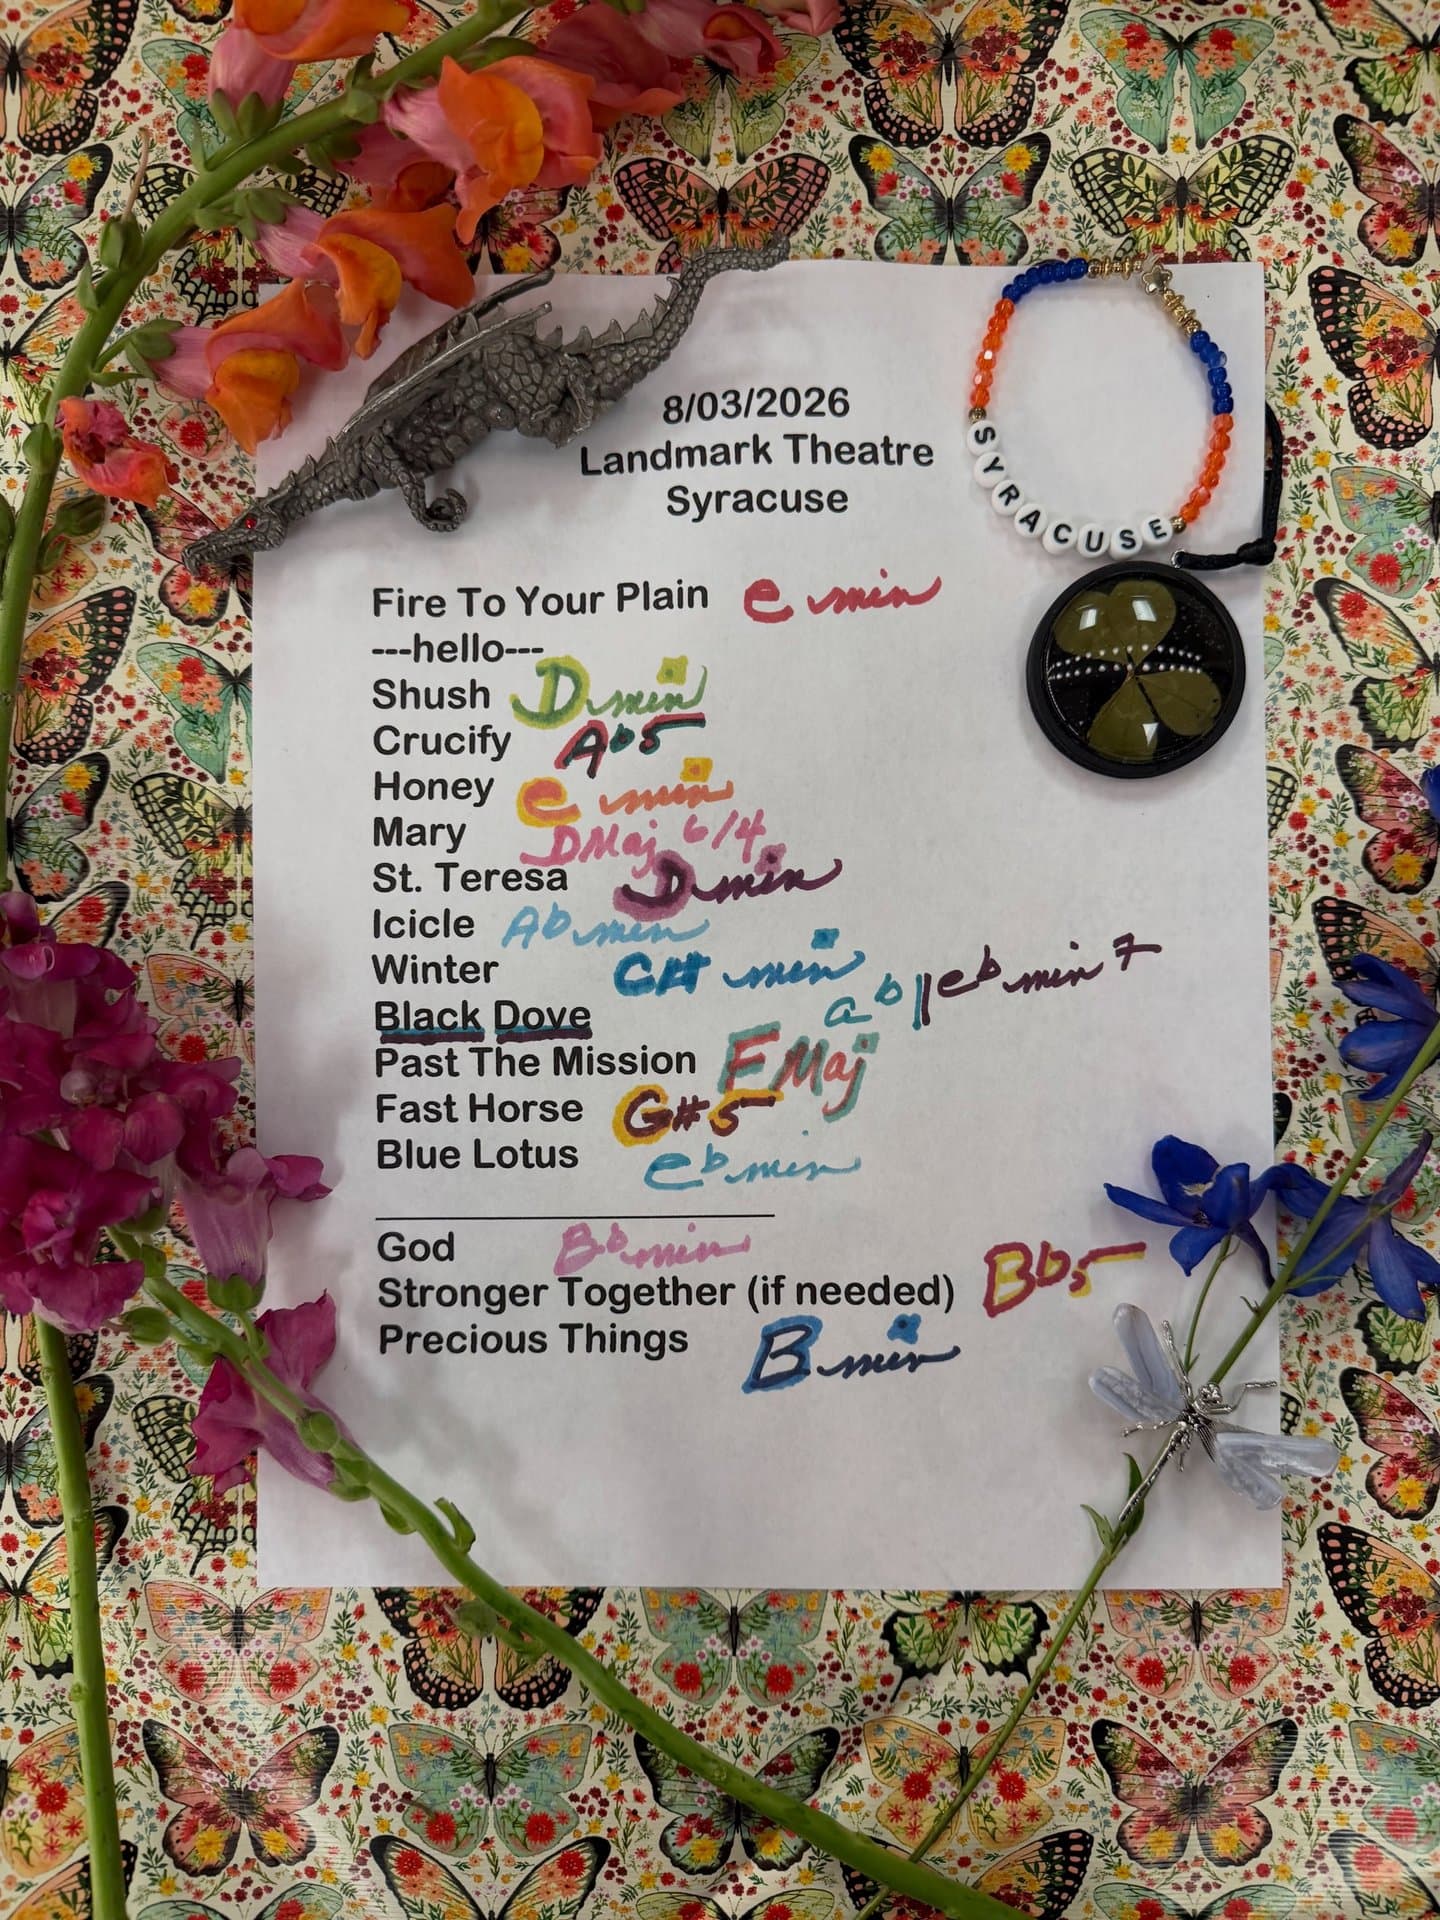 8/03/2026
Landmark Theatre
Syracuse
SYRACUSE
Fire To Your Plain e min
---hello---
Shush D min
Crucify Ab5
Honey e min
Mary DMaj 6/4
St. Teresa D min
Icicle Ab min
Winter C# min
Black Dove ab||eb min 7
Past The Mission F Maj
Fast Horse G#5
Blue Lotus eb min
God Bb min
Stronger Together (if needed) Bb5
Precious Things B min